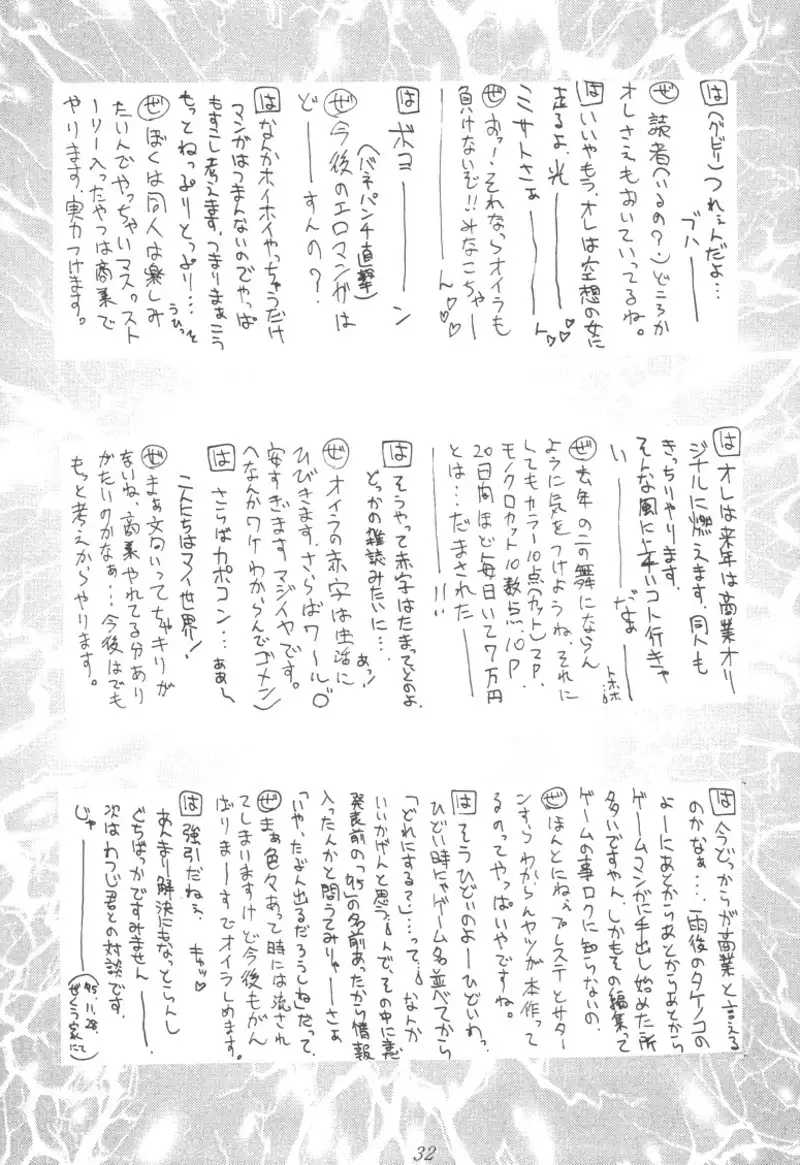 は(グビリ)つれぇんだよ…
ブハーーー
ぜ 読者(いるの?)どころか
オレさえもおいていってるね。
は いいやもう、オレは空想の女に
走るよ、光ーーー
ミサトさぁーーーん♡♡
ぜ おっ!それならオイラも
負けないぞ!!みなこちゃー
ーーーん♡♡
は ボコーーーン
(バネパンチ直撃)
ぜ 今後のエロマンガは
どーーーすんの?
は なんかホイホイやっちゃうだけ
マンガはつまんないのでやっぱ
もすこし考えます。つまりまぁこう
もっとねっぷりとっぷり… うひっと
ぜ ぼくは同人は楽しみ
たいんでやっちゃいマス。スト
ーリー入ったやつは商業で
やります、実力つけます。
は オレは来年は商業オリ
ジナルに燃えます、同人も
きっちりやります。
そんな風に上手いコト行きゃ
いーーーだょーーー トホホ…
ぜ 去年の二の舞にならん
ように気をつけようね、それに
してもカラー10点(カット)2P、
モノクロカット10数点、10P
20日間ほど毎日いて7万円
とは…だまされたーー
ーーー!!
は そうやって赤字はたまってくのよ、
どっかの雑誌みたいに… あっ!
ぜ オイラの赤字は生活に
ひびきます、さらばワールド
安すぎます マジイヤです。
(なんかワケわからんでゴメン)
は さらばカポコン… ああ〜
こんにちはマイ世界!
ぜ まぁ文句いってちゃキリが
ないね、商業やれてる分あり
がたいのかなぁ…今後はでも
もっと考えからやります。
は 今どっからが商業と言える
のかなぁ…雨後のタケノコの
よーにあとからあとからあとから
ゲームマンガに手出し始めた所
多いですやん、しかもその編集って
ゲームの事ロクに知らないの、
ぜ ほんとにねぇプレステとサター
ンすらわからんヤツが本作って
るのってやっぱいやですね。
は そうひどいのよーひどいわっ
ひどい時にゃゲーム名並べてから
「どれにする?」…って…なんか
いいかげんと思う。んで、その中に意
発表前の「'95」の名前あったから情報
入ったんかと問うてみりゃーさぁ
「いや、たぶん出るだろうしね」だって、
ぜ まぁ色々あって時には流され
てしまいますけど今後もがん
ばりまーすでオイラしめます。
は 強引だねぇ、 キャッ♡
あんまり解決にもなっとらんし
ぐちばっかですみませんーー。
次はわつじ君との対談です。
じゃーーー ('95.11.28. ぜくう家にて)
32